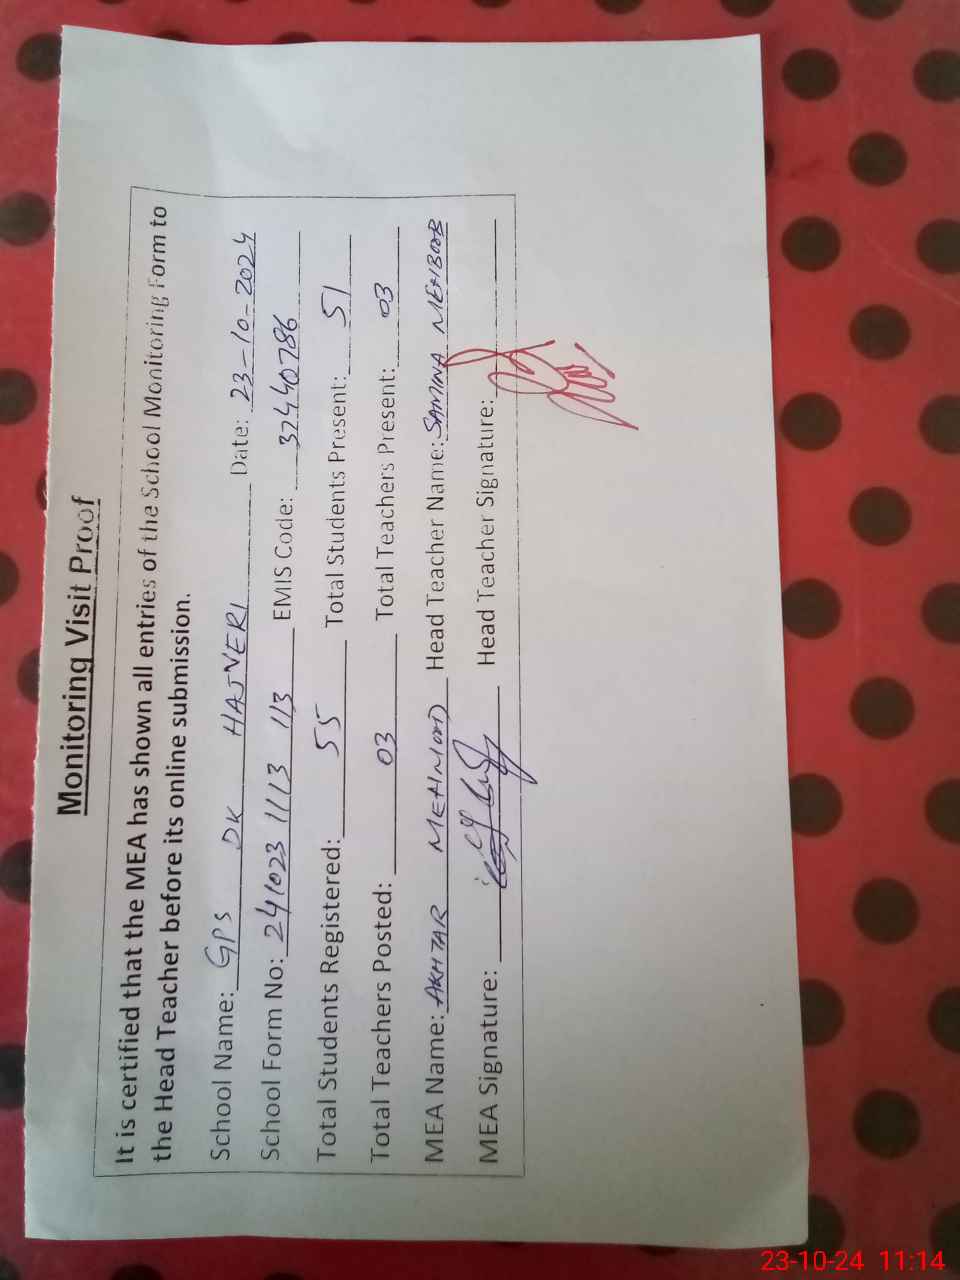 Monitoring Visit Proof
It is certified that the MEA has shown all entries of the School Monitoring Form to
the Head Teacher before its online submission.
School Name: GPS DK HAJVERI Date: 23-10-2024
School Form No: 241023 1113 113 EMIS Code: 32440786
Total Students Registered: 55 Total Students Present: 51
Total Teachers Posted: 03 Total Teachers Present: 03
MEA Name: AKHTAR MEHMOOD Head Teacher Name: SAMINA MEHBOOB
MEA Signature: Head Teacher Signature:
23-10-24 11:14